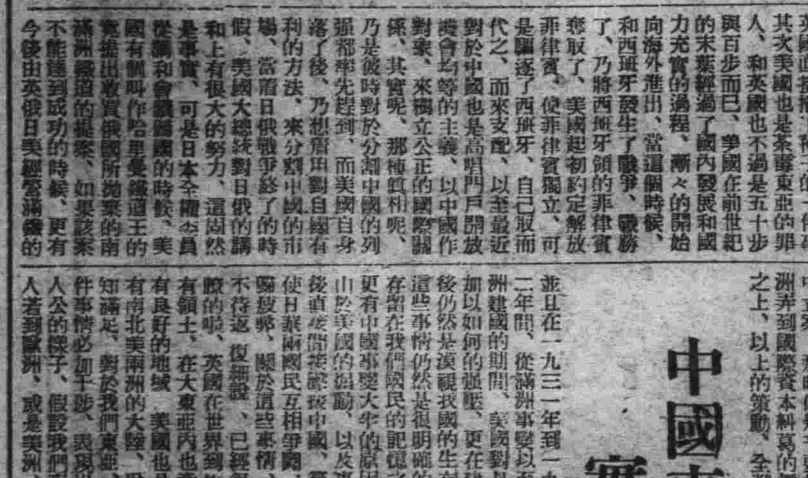 其次美國也是荼毒東亞的罪
人、和英國也不過是五十步
與百步而已、美國在前世紀
的末葉經過了國內發展和國
力充實的過程、漸々的開始
向海外進出、當這個時候、
和西班牙發生了戰爭、戰勝
了、乃將西班牙領的菲律賓
奪取了、美國起初約定解放
菲律賓、使菲律賓獨立、可
是驅逐了西班牙、自己取而
代之、而來支配、以至最近
對於中國也是高唱門戶開放
機會均等的主義、以中國作
對象、來獨立公正的國際關
係、其實呢、那種眞相呢、
乃是彼時對於分割中國的列
强都率先趕到、而美國自身
落了後、乃想着用對自國有
利的方法、來分割中國的市
場、當着日俄戰爭終了的時
假、美國大總統對日俄的講
和上有很大的努力、這固然
是事實、可是日本全權委員
從講和會議歸國的時候、美
國有個叫作哈里曼鐵道王的
竟提出收買俄國所拋棄的南
滿洲鐵道的提案、如果該案
不能達到成功的時候、更有
今後由英俄日美經營滿鐵的
洲弄到國際資本糾葛的
之上、以上的策動、全
中國
並且在一九三一年到一九
二年間、從滿洲事變以
洲建國的期間、美國對
加以如何的强壓、更在
後仍然是漠視我國的生
這些事情仍然是很明確的
存留在我們國民的記憶
更有中國事變大半的原因
由於美國的煽動、以及
後直接間接援中國、
使日華兩國民互相爭鬪、
疲弊、關於這些事情、
不待返復細說、已經
瞭的啦、英國在世界到
有領土、在大東亞內也
有良好的地域、美國也
有南北美兩洲的大陸、
知滿足、對於我們東亞、
件事情必加干涉、表現
人公的樣子、假設我們
人若到歐洲、或是美洲、